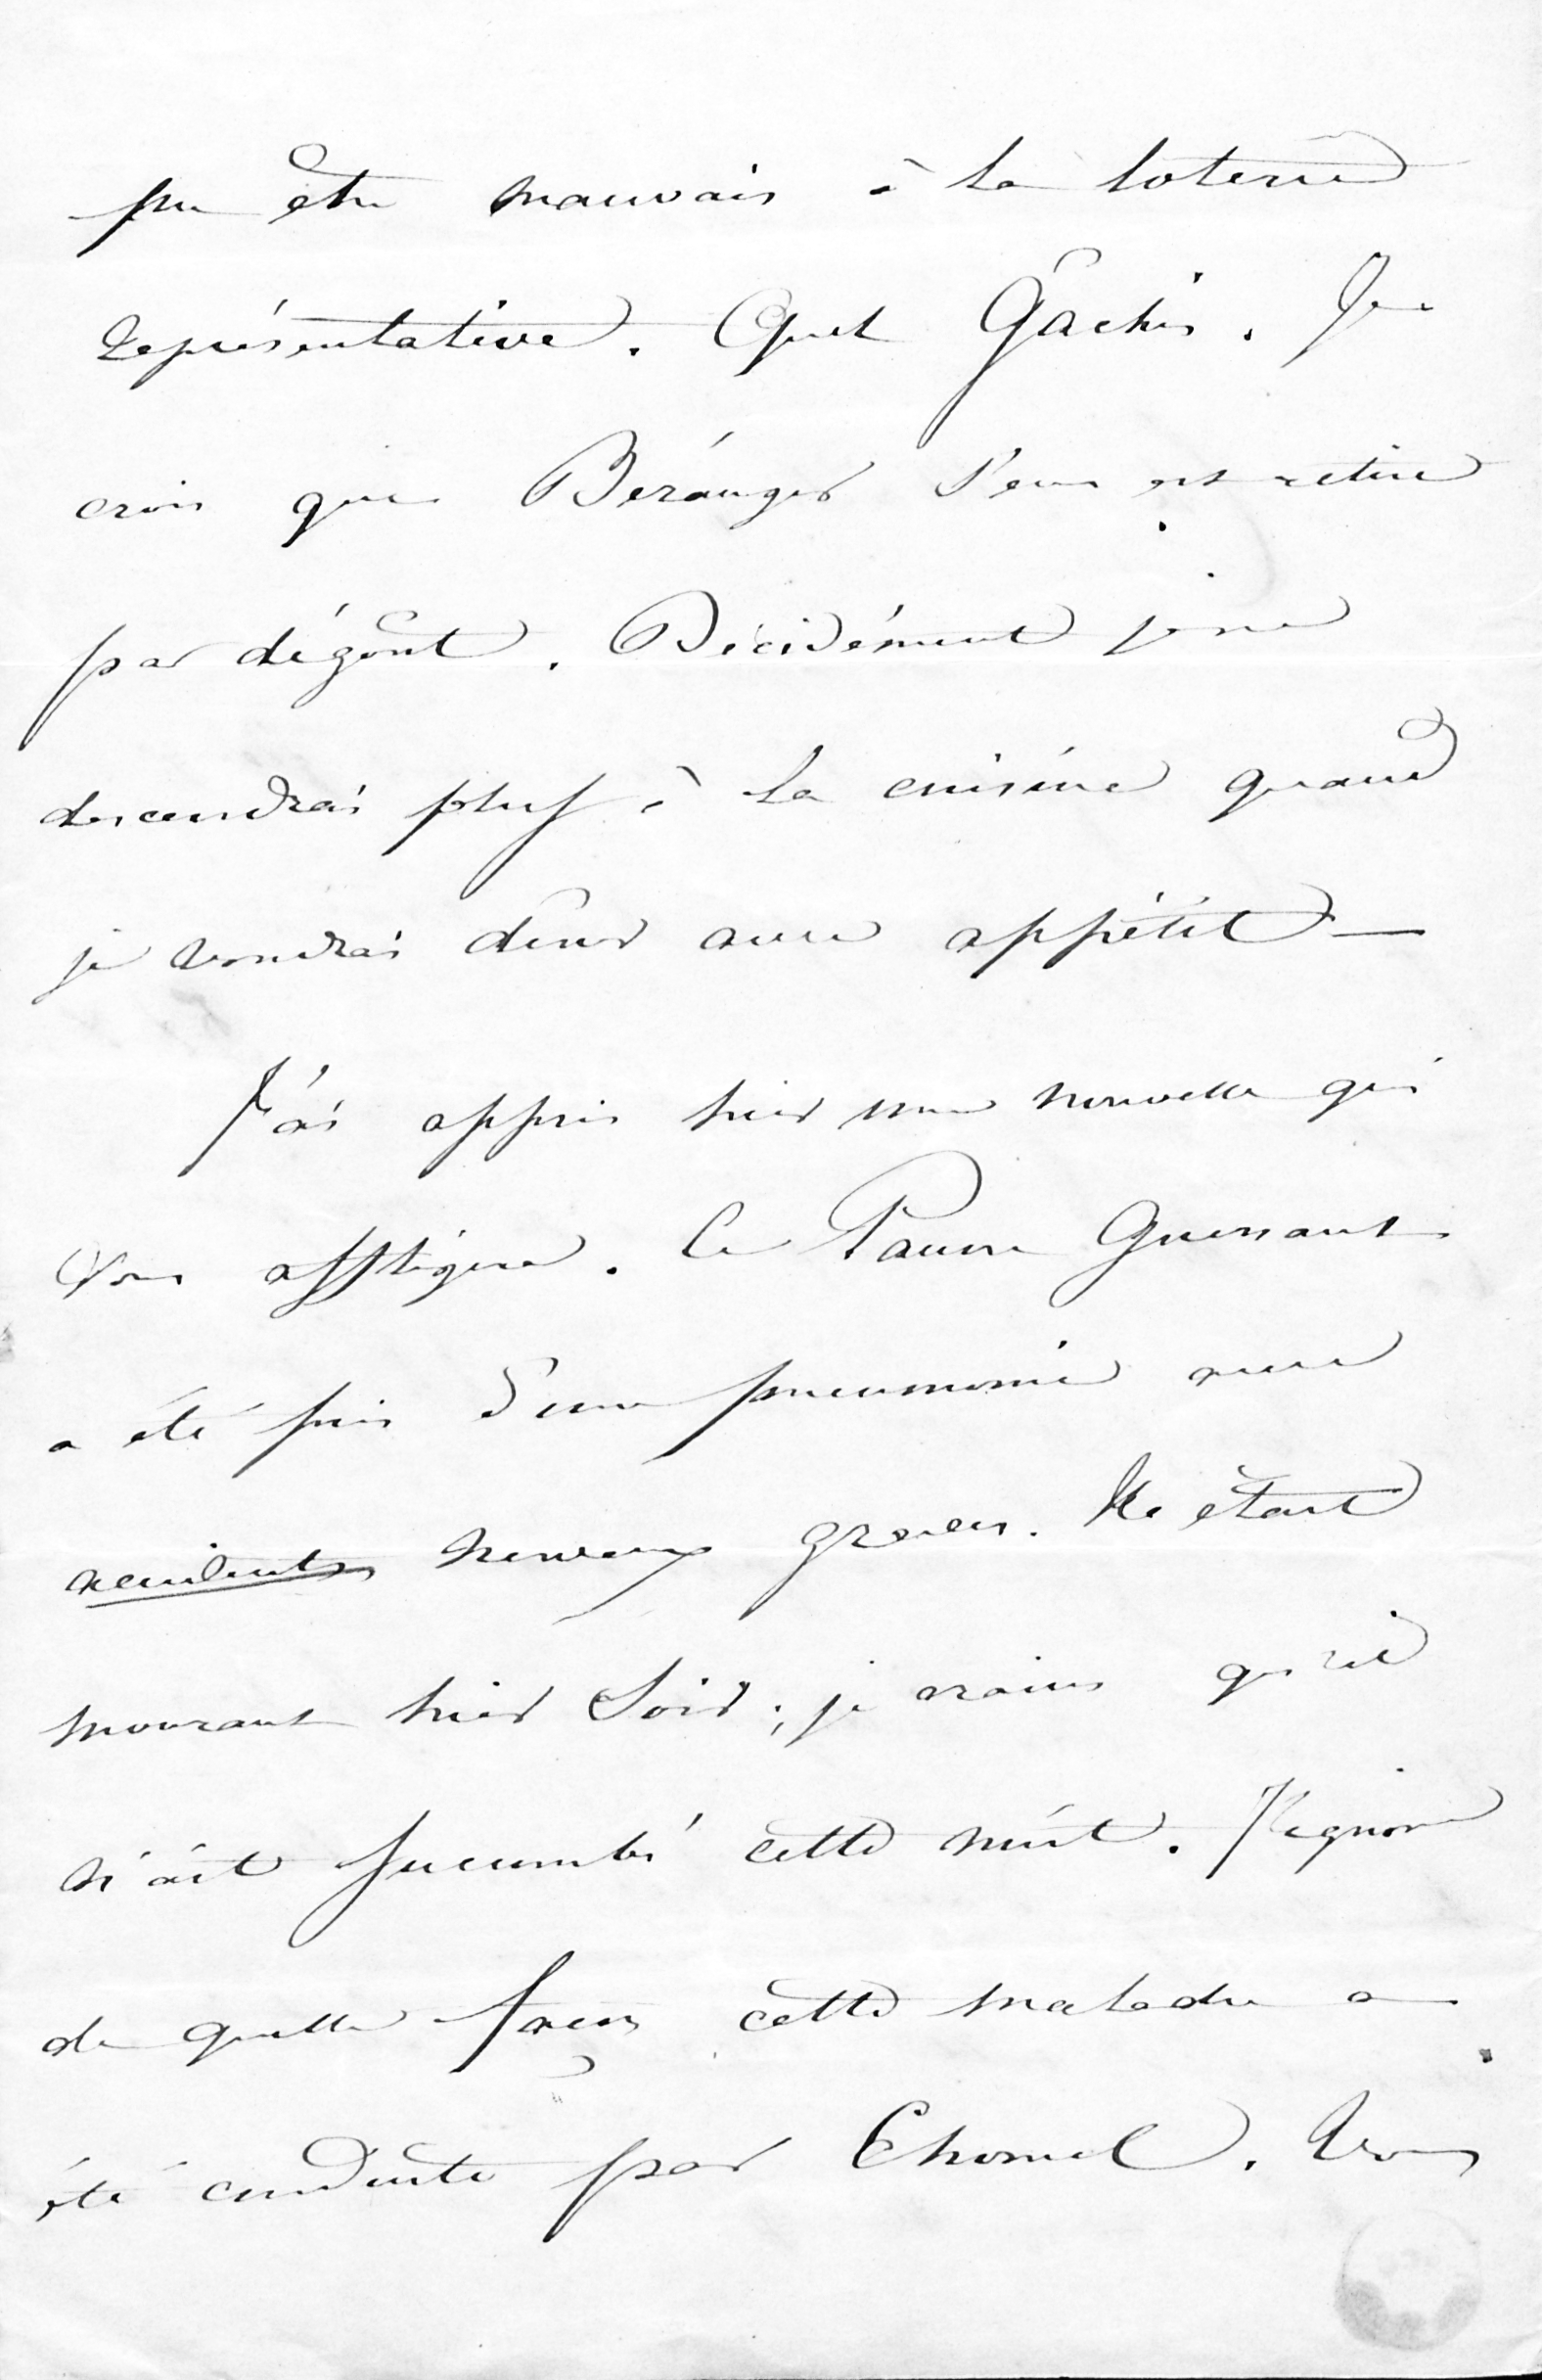 pu être mauvais à la loterie
représentative. Quel Gâchis. Je
crois que Béranger s'en est retiré
par dégoût. Décidément je ne
descendrai plus à la cuisine quand
je voudrai diner avec appétit —
J'ai appris hier une nouvelle qui
vous affligera. Ce Pauvre Guersant
a été pris d'une pneumonie avec
accidents nerveux graves. Il était
mourant hier soir ; je crains qu'il
n'ait sucombé cette nuit. J'ignore
de quelle façon cette maladie a
été conduite par Chomel. Vous